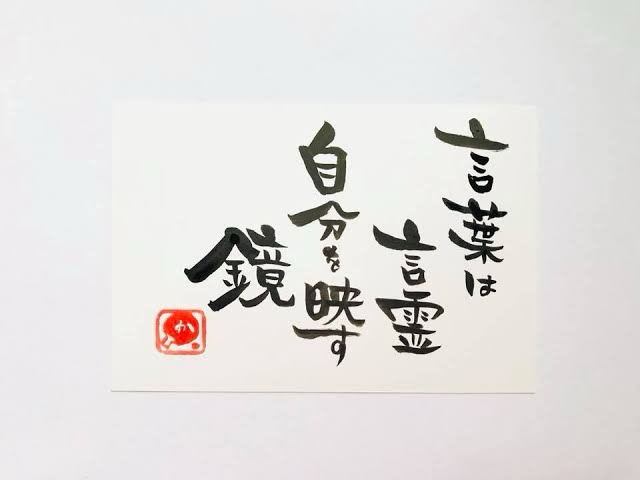 言葉は
言霊
自分を映す
鏡
か